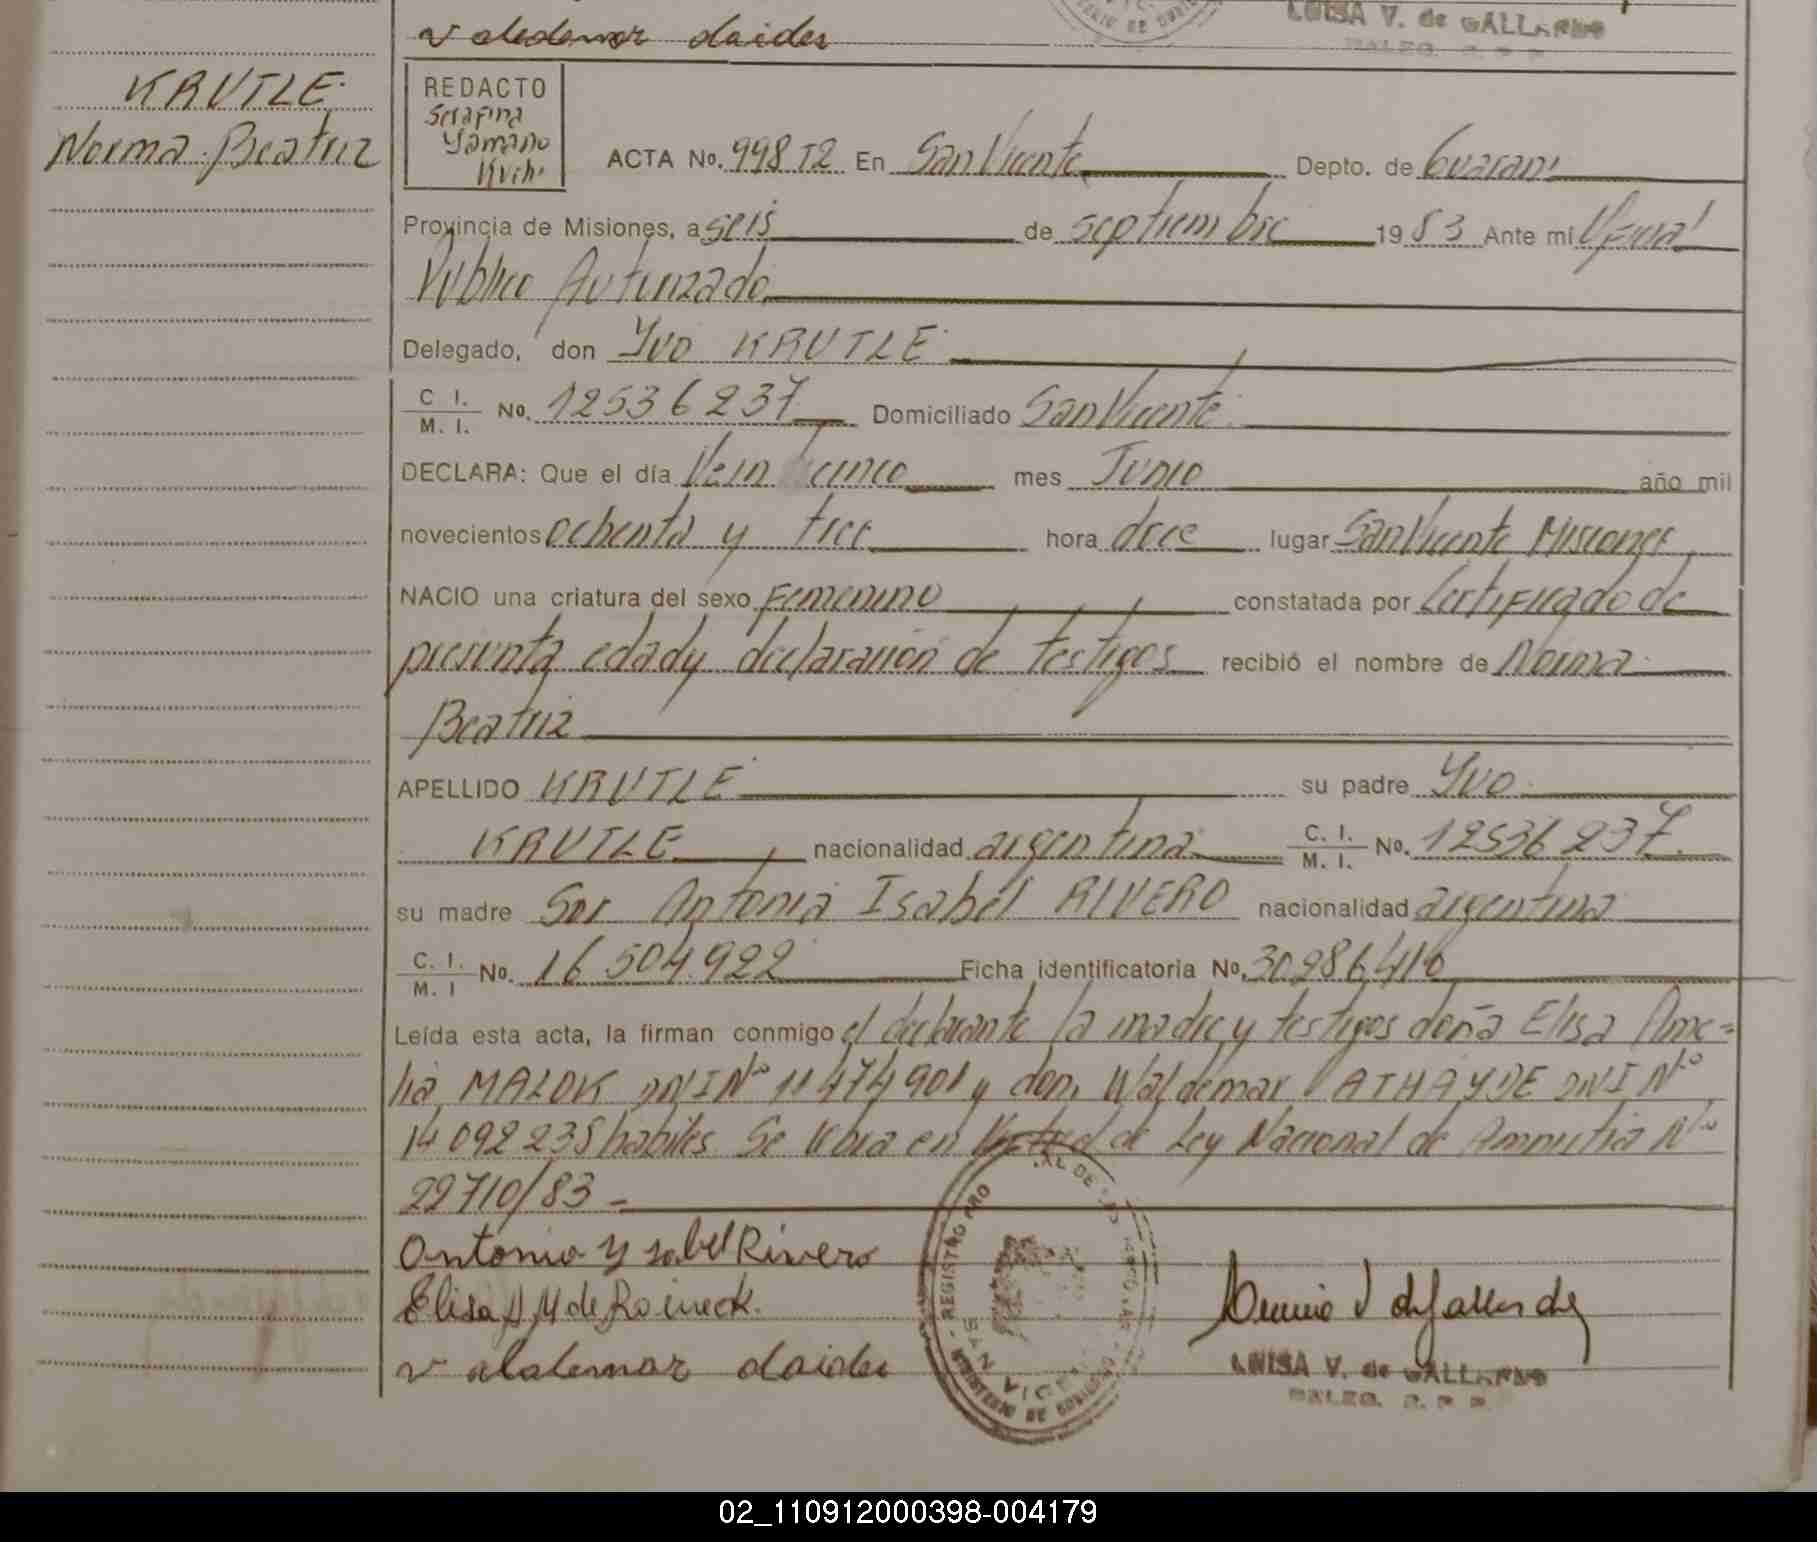 valdemar daides
LUISA V. de GALLARDO
KRUTLE
Norma Beatriz
REDACTO
Serafina
ACTA No. 998 T2 En San Vicente Depto. de Guarani
Provincia de Misiones, a seis de septiembre 1983 Ante mi Oficial
Publico Autorizado
Delegado, don Yvo KRUTLE
C. I. / M. I. No. 12536237 Domiciliado San Vicente
DECLARA: Que el día Veinticinco mes Junio año mil
novecientos ochenta y tres hora doce lugar San Vicente Misiones
NACIO una criatura del sexo Femenino constatada por Certificado de
presunta edad y declaración de testigos recibió el nombre de Norma
Beatriz
APELLIDO KRUTLE su padre Yvo
KRUTLE nacionalidad argentina C. I. / M. I. No. 12536237
su madre Antonia Isabel RIVERO nacionalidad argentina
C. I. / M. I No. 16.504.922 Ficha identificatoria No. 30.986.416
Leída esta acta, la firman conmigo el declarante la madre y testigos doña Elisa Ame=
lia MALOK DNI Nº 11474901 y don Waldemar ATHAYDE DNI Nº
14092235 habiles. Se labra en de Ley Nacional de Amnistia Nº
22710/83 -
Antonia Ysabel Rivero
Elisa A M de Roineck.
valdemar daides
REGISTRO PRO AL DE LAS
SAN VICENTE
MINISTERIO DE GOBIERNO
LUISA V. de GALLARDO
02_110912000398-004179